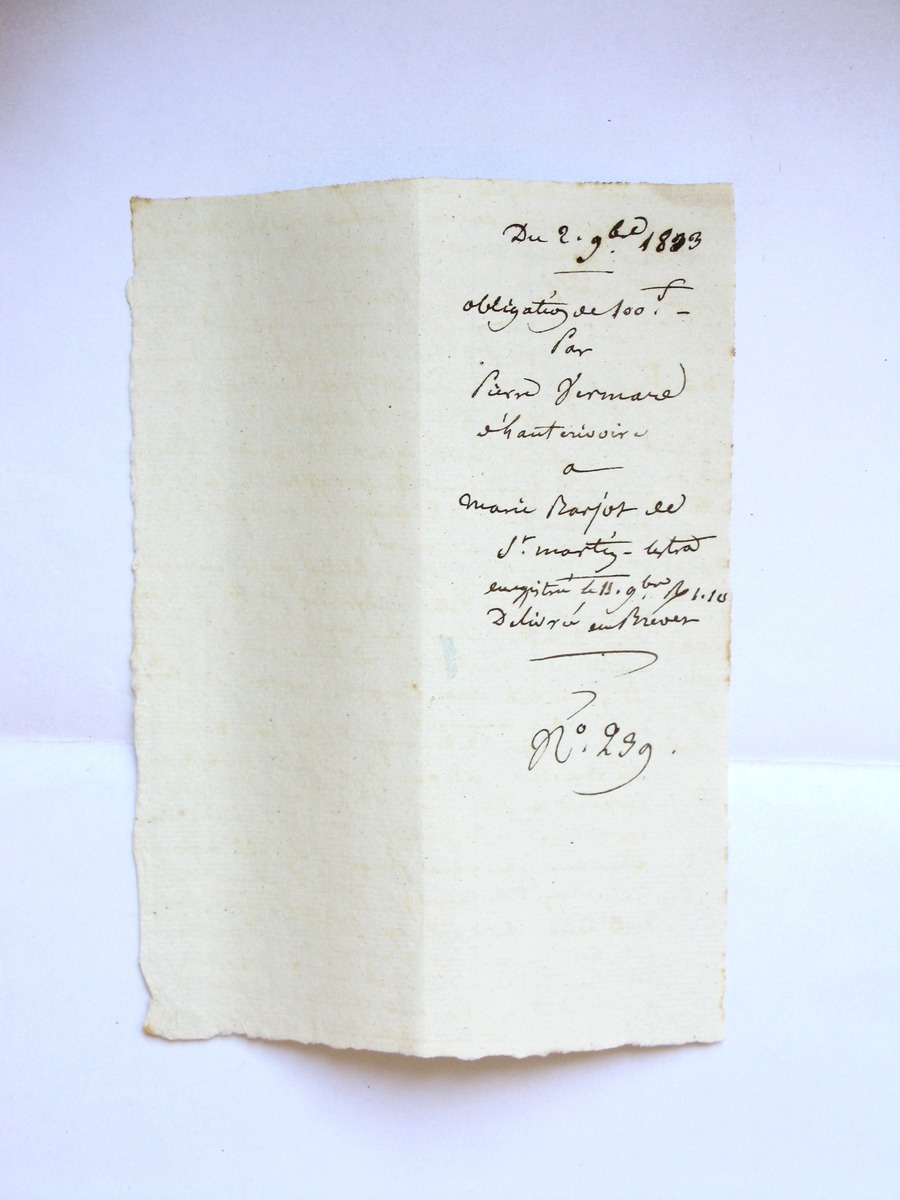 Du 2. 9bre 1833
obligation de 100f. -
Par
Pierre Fermare
d'hauterivoire
a
marie Barjot de
St. martin - lestra
enregistré le 11. 9bre R 1.10
Délivré en Brevet
No. 239.